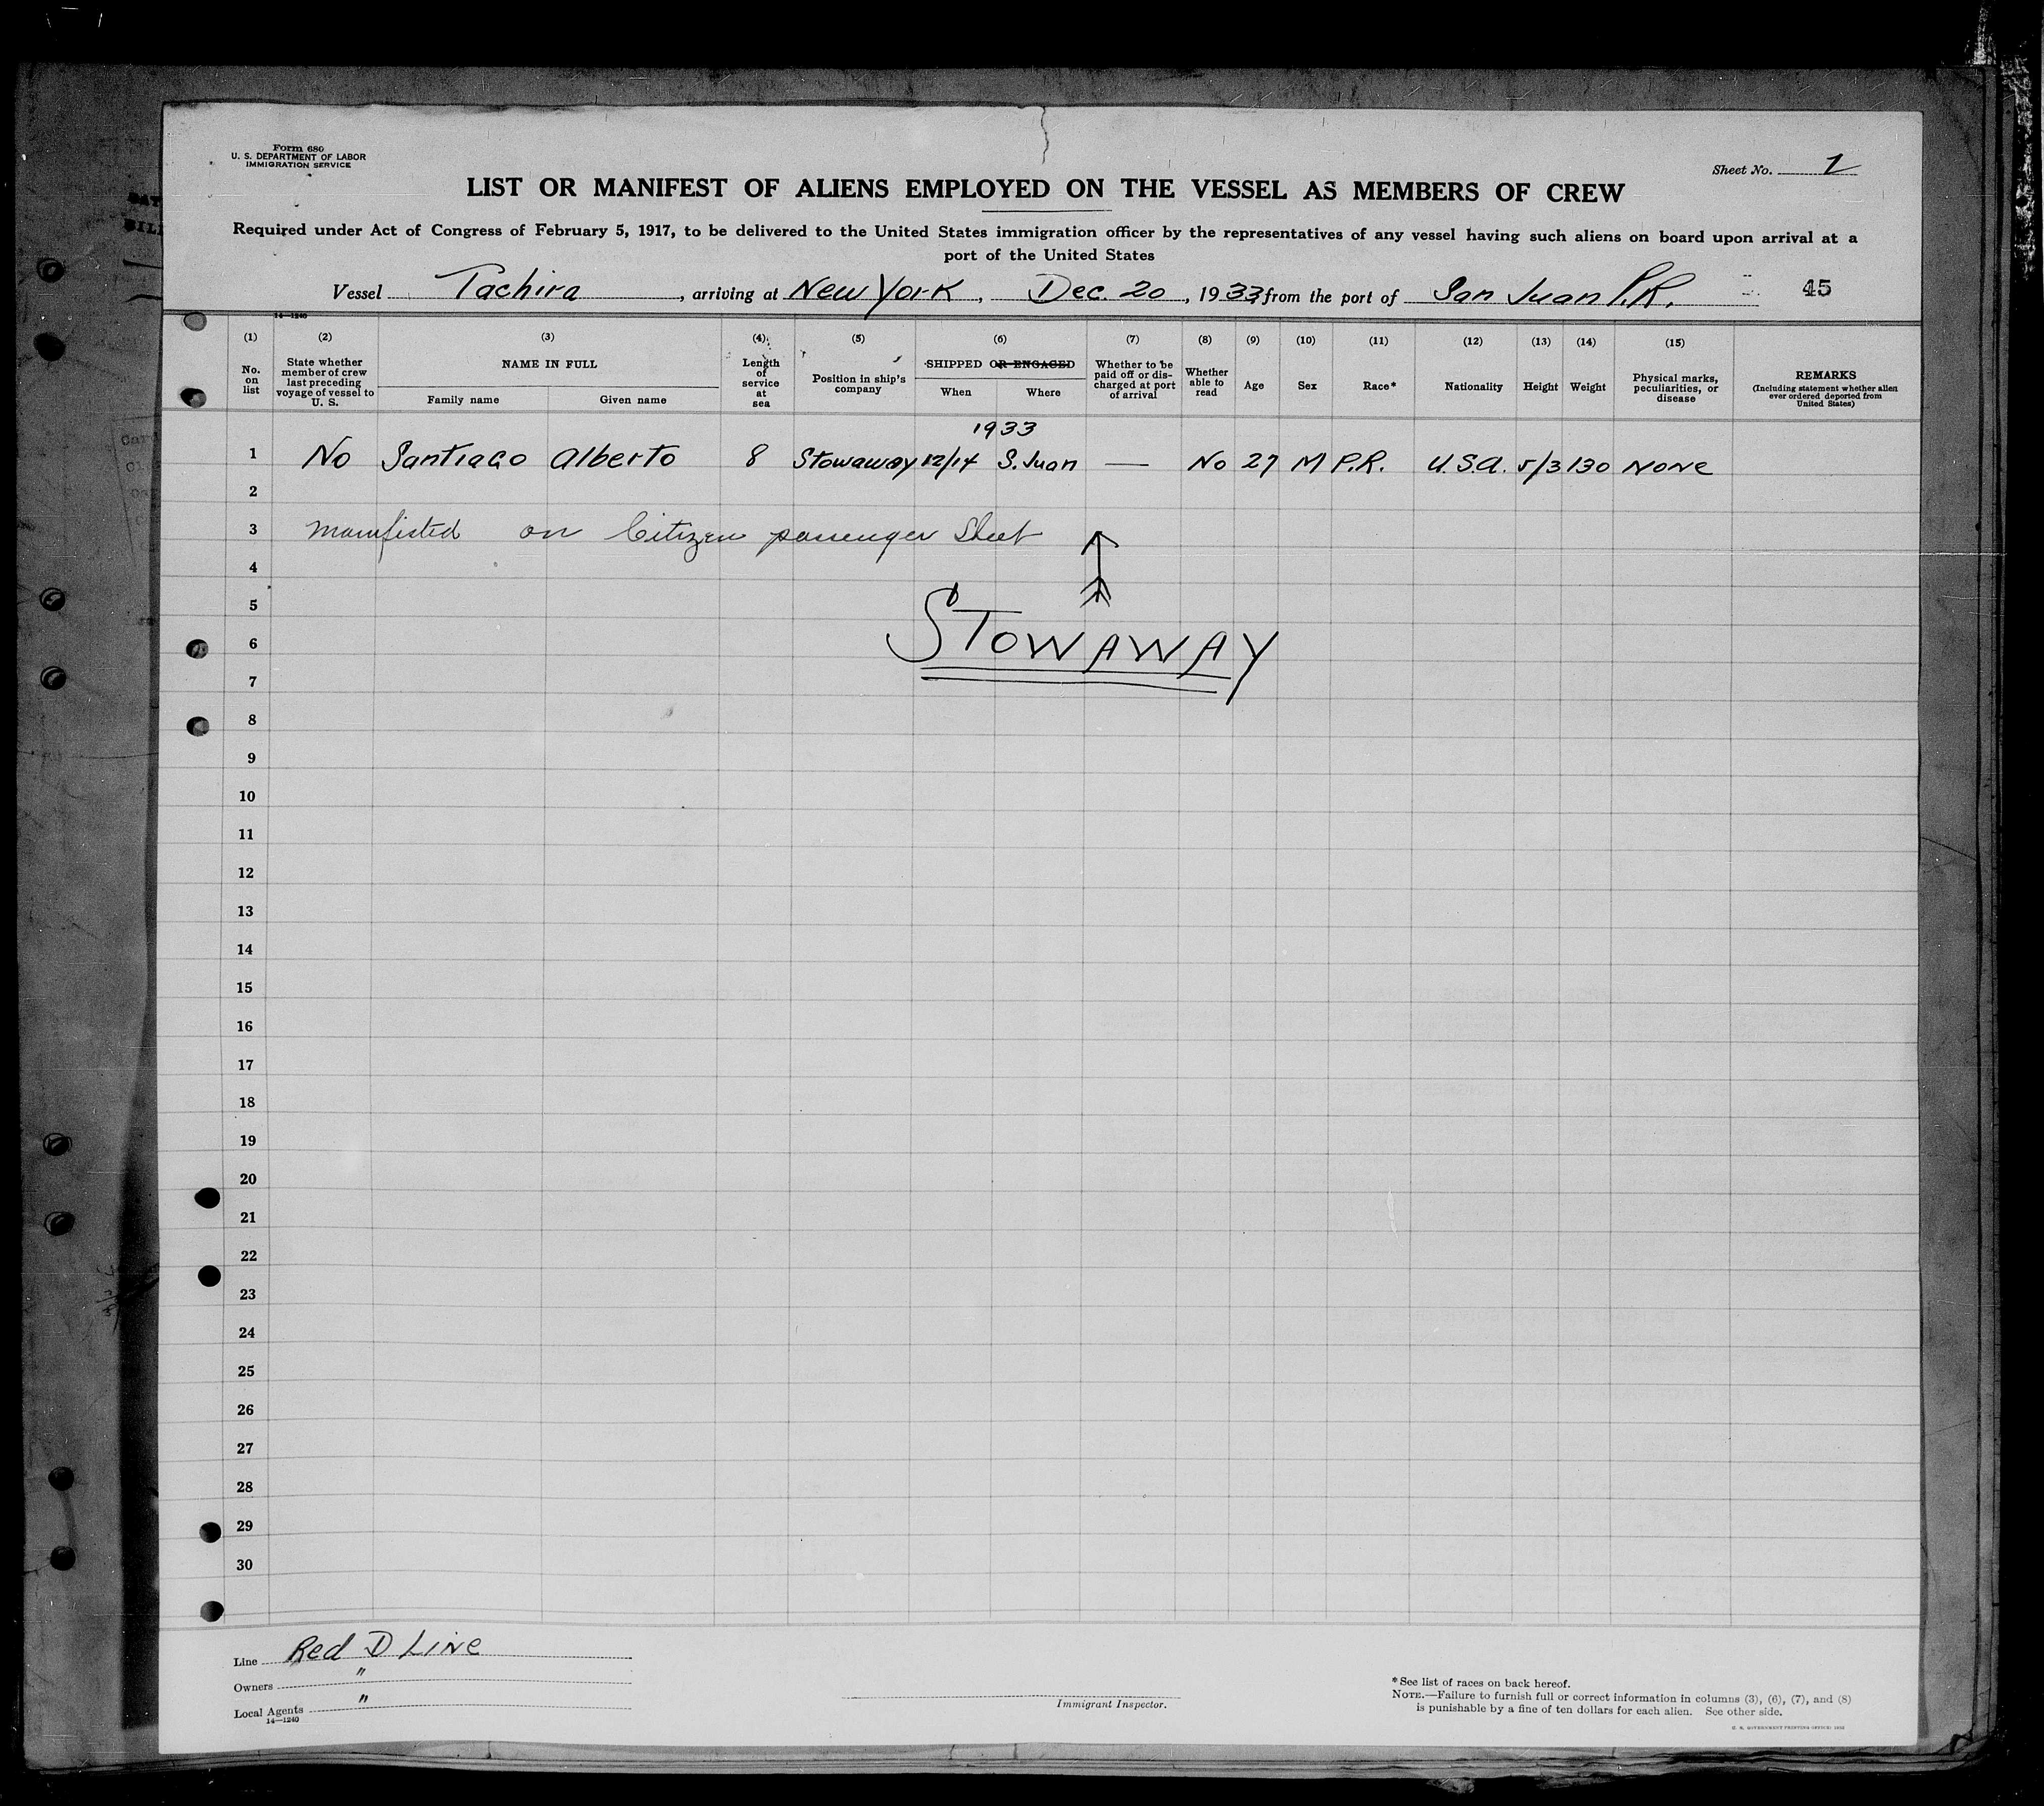 Form 680
U. S. DEPARTMENT OF LABOR
IMMIGRATION SERVICE
Sheet No. 1
LIST OR MANIFEST OF ALIENS EMPLOYED ON THE VESSEL AS MEMBERS OF CREW
Required under Act of Congress of February 5, 1917, to be delivered to the United States immigration officer by the representatives of any vessel having such aliens on board upon arrival at a
port of the United States
Vessel Tachira, arriving at New York, Dec. 20, 1933, from the port of San Juan P.R. 45
14—1240
(1) (2) (3) (4) (5) (6) (7) (8) (9) (10) (11) (12) (13) (14) (15)
No. on list
State whether member of crew last preceding voyage of vessel to U. S.
NAME IN FULL
Family name
Given name
Length of service at sea
Position in ship's company
SHIPPED OR ENGAGED
When
Where
Whether to be paid off or discharged at port of arrival
Whether able to read
Age
Sex
Race*
Nationality
Height
Weight
Physical marks, peculiarities, or disease
REMARKS
(Including statement whether alien ever ordered deported from United States)
1933
1 No Santiago Alberto 8 Stowaway 12/14 S. Juan — No 27 M P.R. U.S.A. 5/3 130 None
2
3 Manifested on Citizen passenger Sheet
4
5
6 STOWAWAY
7
8
9
10
11
12
13
14
15
16
17
18
19
20
21
22
23
24
25
26
27
28
29
30
Line Red D Line
Owners "
Local Agents "
14—1240
Immigrant Inspector.
*See list of races on back hereof.
NOTE.—Failure to furnish full or correct information in columns (3), (6), (7), and (8)
is punishable by a fine of ten dollars for each alien. See other side.